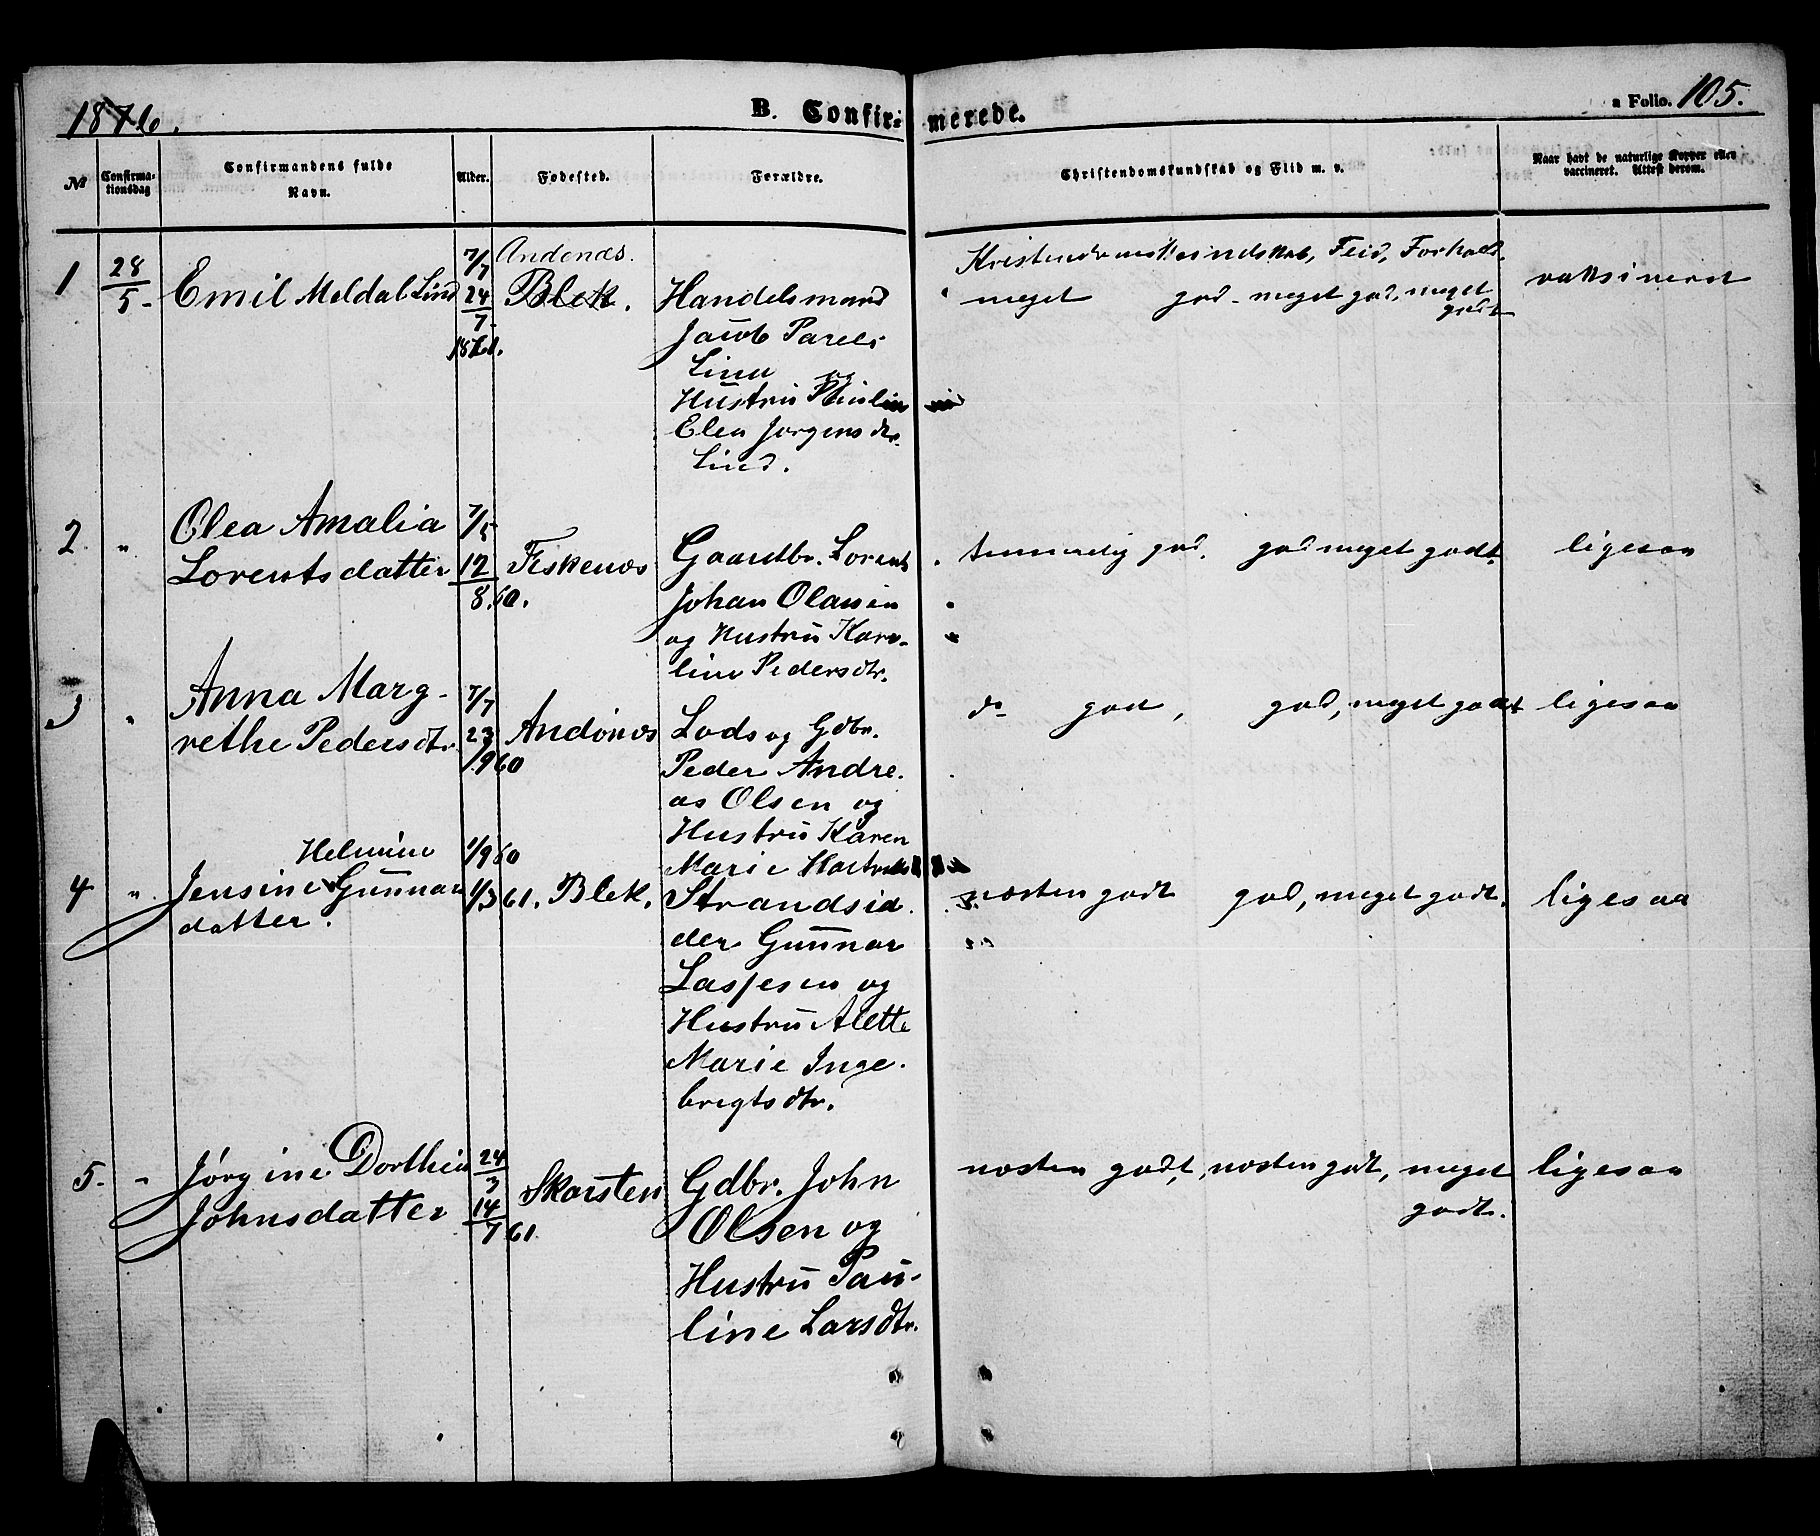 1876.
B. Confir- merede.
a Folio. 105.
№
Confirma-
tionsdag
Confirmandens fulde
Navn.
Alder.
Fødested.
Forældre.
Christendomskundskab og Flid m. v.
Naar havt de naturlige Kopper eller
vaccineret. Attest derom.
1 28/5- Emil Meldal Lind 7/7 24/7. 1861. Andenæs. Blek. Handelsmand
Jacob
Lind og
Hustru
Elea Jørgensdtr.
Lind.
Kristendomskundskab, Flid, Forhold.
meget god - meget god, meget
godt
vaksineret
2. " Olea Amalia
Lorentsdatter 7/5 12/8.60. Fiskenæs Gaardbr. Lorents
Johan Olausen
og Hustru Karo-
line Pedersdtr.
temmelig god. god meget godt. ligesaa
3 " Anna Marg-
rethe Pedersdtr. 7/7 23/9 60 Andenæs Lods og Gdbr.
Peder Andre-
as Olsen og
Hustru Karen
Marie
do god, god, meget godt ligesaa
4 " Helmine
Jensine Gunnar
datter. 1/9 60 1/3 61. Blek. Strandsid
der Gunnar
Lassesen og
Hustru Alette
Marie Inge-
brigtsdtr.
næsten godt god, meget godt. ligesaa
5. " Jørgine Dorthea
Johnsdatter 24/3 14/7 61. Skarsten Gdbr. John
Olsen og
Hustru Pau-
line Larsdtr.
næsten godt, næsten godt, meget
godt.
ligesaa